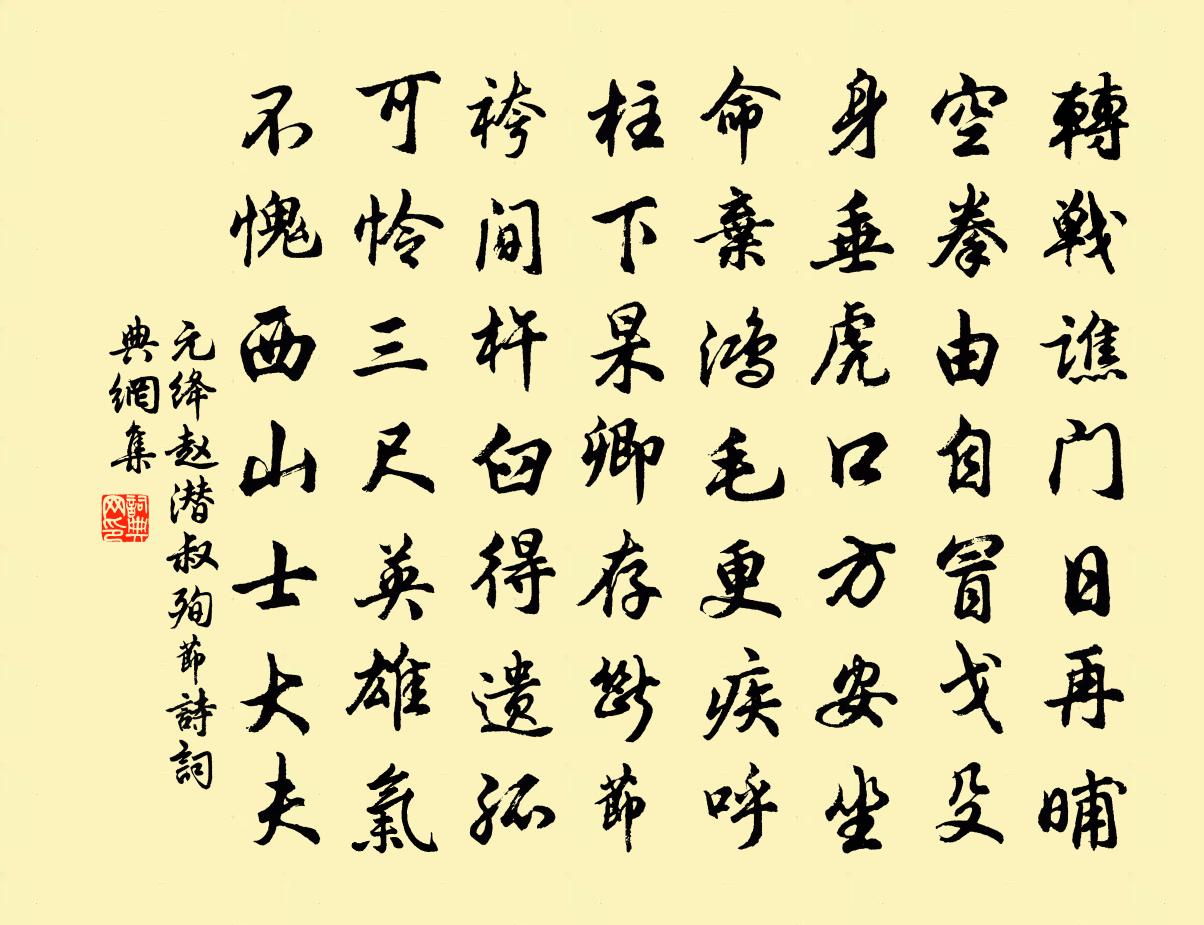 轉戰譙门日再晡
空拳由自冒戈殳
身垂虎口方安坐
命棄鴻毛更疾呼
柱下杲卿存斷節
袴间杵臼得遗孤
可怜三尺英雄氣
不愧西山士大夫
元绛赵潜叔殉節詩詞
典網集
詞典
网印